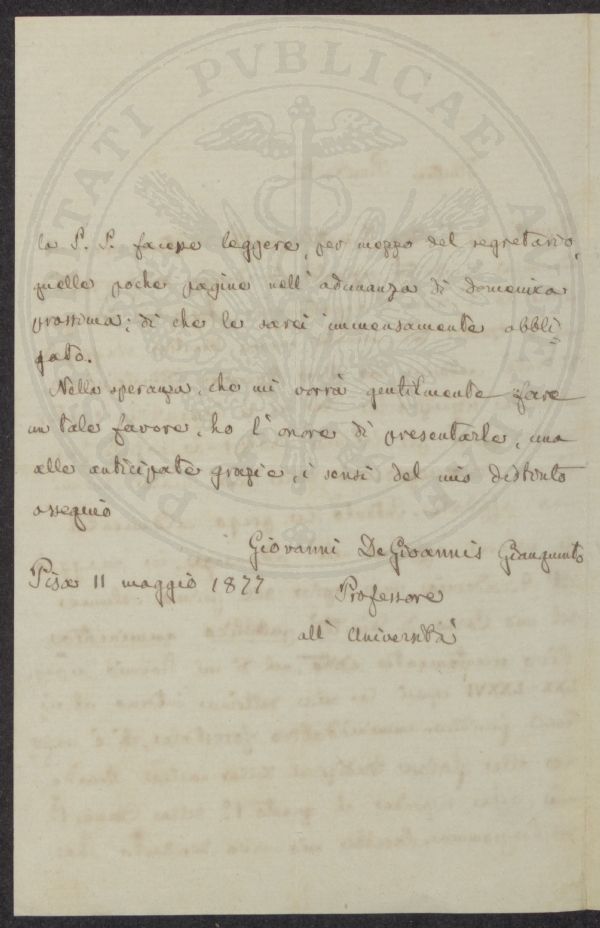 la S. S. facesse leggere, per mezzo del segretario,
quelle poche pagine nell'adunanza di domenica
prossima; di che le sarei immensamente obbli=
gato.
Nella speranza, che mi vorrà gentilmente fare
un tale favore, ho l'onore di presentarle, una
alle anticipate grazie, i sensi del mio distinto
ossequio
Giovanni De Gioannis Gianquinto
Pisa 11 maggio 1877
Professore
all'Università